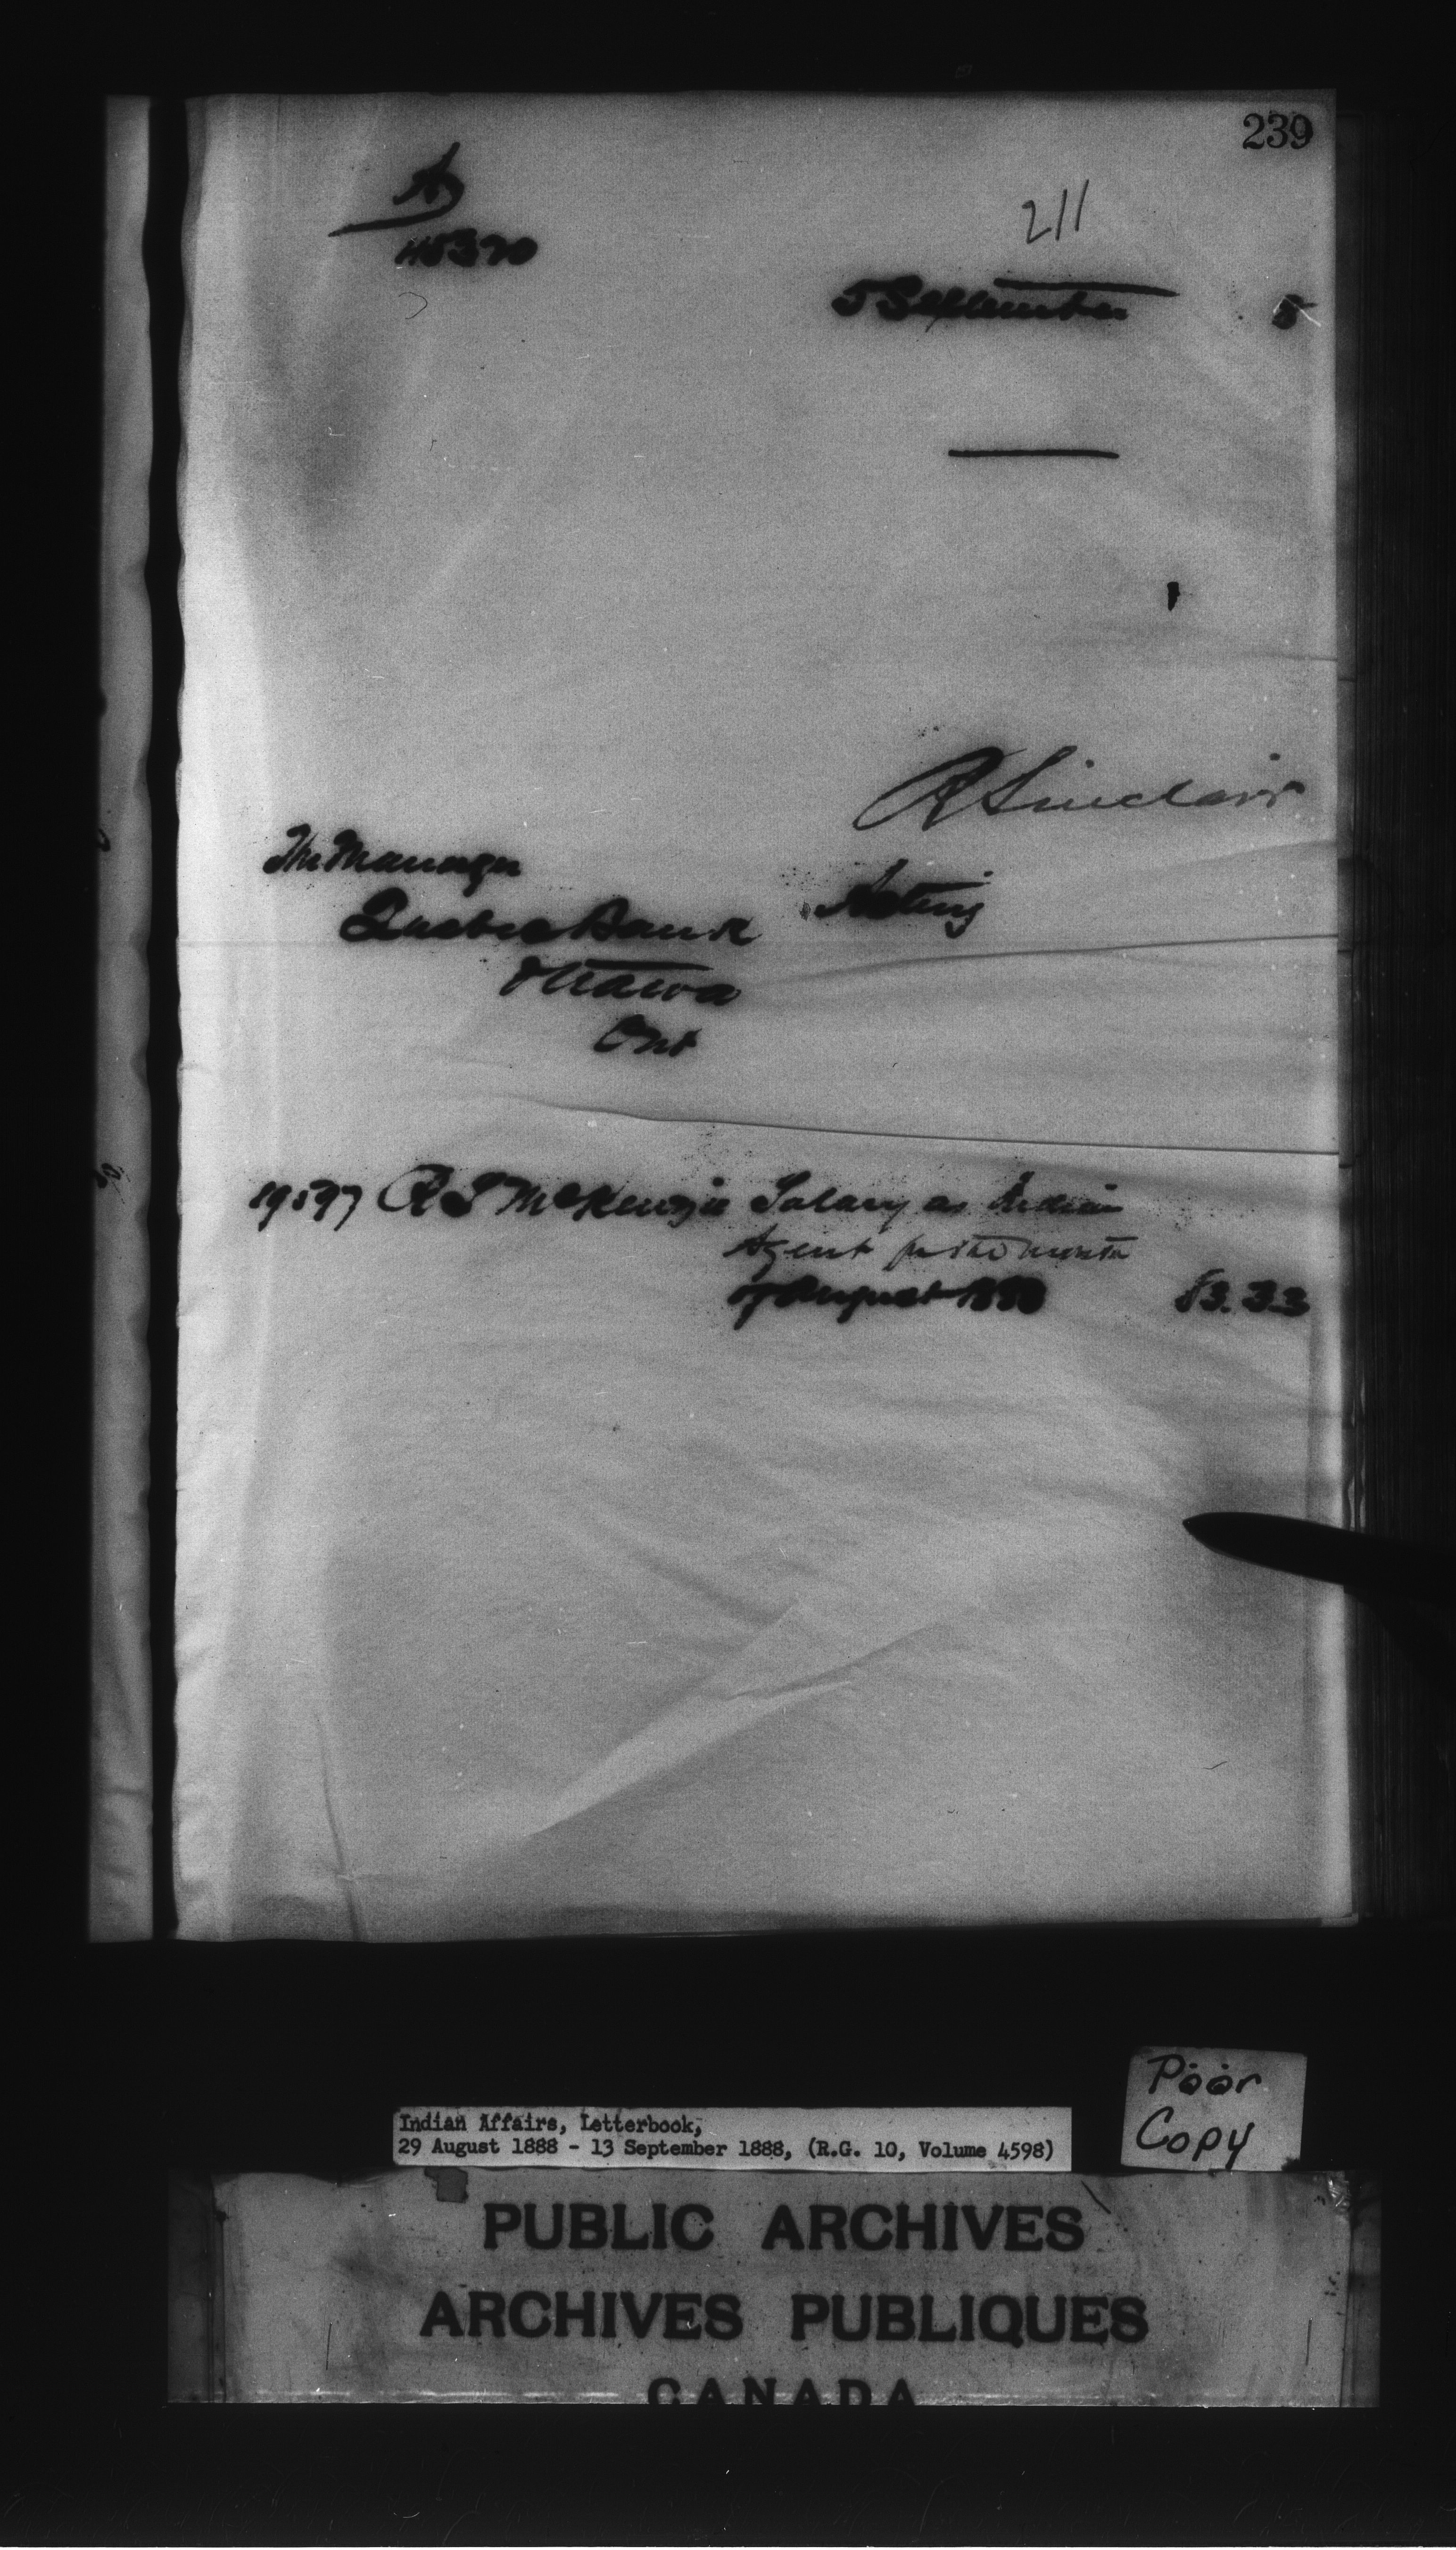 239
A
45370
211
5 September 8
R Sinclair
The Manager
Acting
Quebec Bank
Ottawa
Ont
19597 R S McKenzie Salary as Indian
Agent for the month
of August 1888 83.33
Poor
Copy
Indian Affairs, Letterbook,
29 August 1888 - 13 September 1888, (R.G. 10, Volume 4598)
PUBLIC ARCHIVES
ARCHIVES PUBLIQUES
CANADA